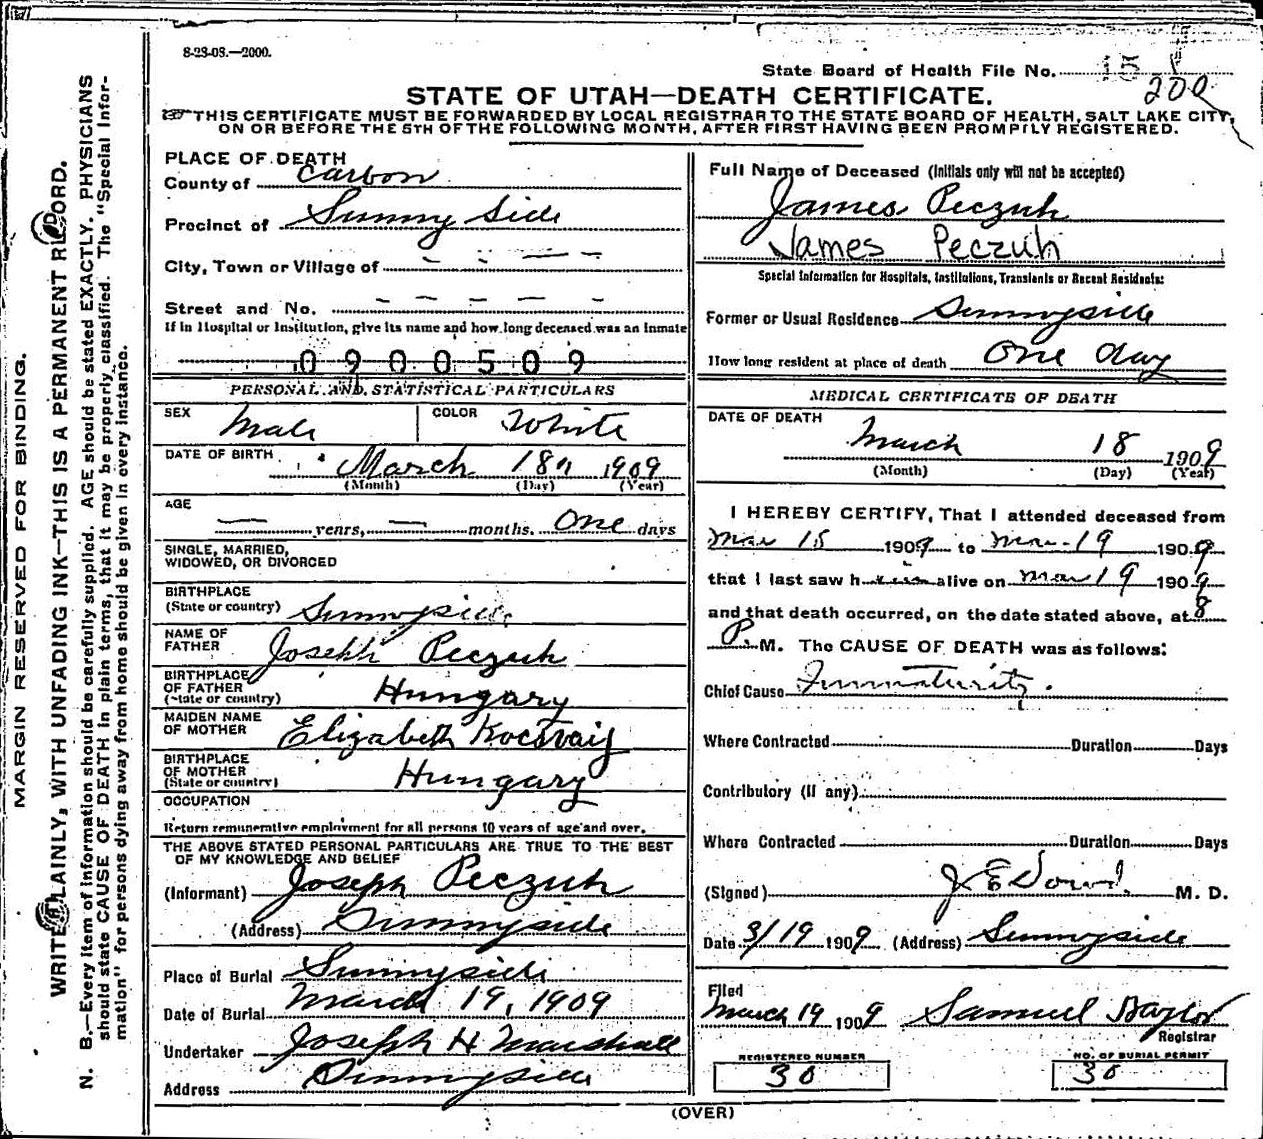 8-23-08.—2000.
State Board of Health File No. 15
200
STATE OF UTAH—DEATH CERTIFICATE.
THIS CERTIFICATE MUST BE FORWARDED BY LOCAL REGISTRAR TO THE STATE BOARD OF HEALTH, SALT LAKE CITY,
ON OR BEFORE THE 5TH OF THE FOLLOWING MONTH, AFTER FIRST HAVING BEEN PROMPTLY REGISTERED.
MARGIN RESERVED FOR BINDING.
WRITE PLAINLY, WITH UNFADING INK—THIS IS A PERMANENT RECORD.
N. B.—Every item of information should be carefully supplied. AGE should be stated EXACTLY. PHYSICIANS
should state CAUSE OF DEATH in plain terms, that it may be properly classified. The "Special Infor-
mation" for persons dying away from home should be given in every instance.
PLACE OF DEATH
County of Carbon
Precinct of Sunny Side
City, Town or Village of — — —
Street and No. — — — — —
If in Hospital or Institution, give its name and how long deceased was an inmate
0900509
PERSONAL AND STATISTICAL PARTICULARS
SEX Male COLOR White
DATE OF BIRTH March 18 1909
(Month) (Day) (Year)
AGE
— years, — months. One days
SINGLE, MARRIED,
WIDOWED, OR DIVORCED
BIRTHPLACE
(State or country) Sunnyside
NAME OF
FATHER Joseph Peczuh
BIRTHPLACE
OF FATHER
(State or country) Hungary
MAIDEN NAME
OF MOTHER Elizabeth
BIRTHPLACE
OF MOTHER
(State or country) Hungary
OCCUPATION
Return remunerative employment for all persons 10 years of age and over.
THE ABOVE STATED PERSONAL PARTICULARS ARE TRUE TO THE BEST
OF MY KNOWLEDGE AND BELIEF
(Informant) Joseph Peczuh
(Address) Sunnyside
Place of Burial Sunnyside
Date of Burial March 19, 1909
Undertaker Joseph H Marshall
Address Sunnyside
Full Name of Deceased (Initials only will not be accepted)
James Peczuh
James Peczuh
Special Information for Hospitals, Institutions, Transients or Recent Residents:
Former or Usual Residence Sunnyside
How long resident at place of death One day
MEDICAL CERTIFICATE OF DEATH
DATE OF DEATH
March 18 1909
(Month) (Day) (Year)
I HEREBY CERTIFY, That I attended deceased from
Mar 18 1909 to Mar. 19 1909
that I last saw him alive on Mar 19 1909
and that death occurred, on the date stated above, at 8
P. M. The CAUSE OF DEATH was as follows:
Chief Cause Immaturity.
Where Contracted Duration Days
Contributory (if any)
Where Contracted Duration Days
(Signed) J E Dowd. M. D.
Date 3/19 1909 (Address) Sunnyside
Filed
March 19 1909 Samuel Naylor
Registrar
REGISTERED NUMBER
30
NO. OF BURIAL PERMIT
30
(OVER)